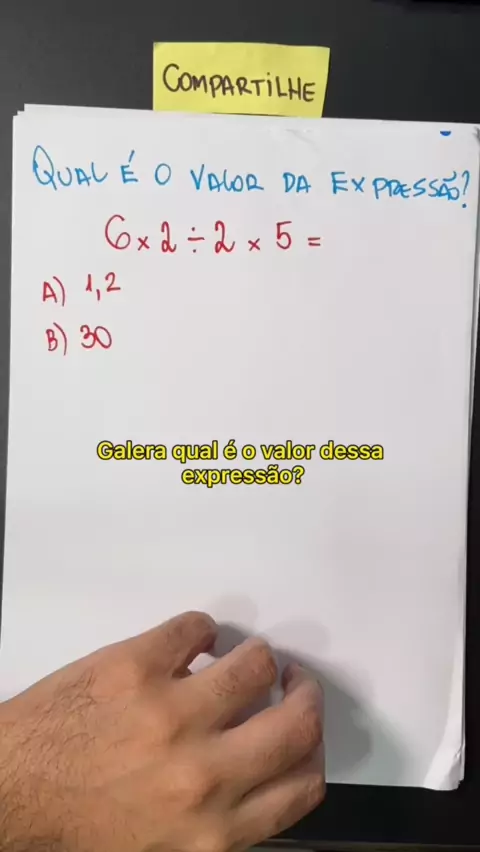 COMPARTILHE
QUAL É O VALOR DA EXPRESSÃO?
6 × 2 ÷ 2 × 5 =
A) 1,2
B) 30
Galera qual é o valor dessa
expressão?